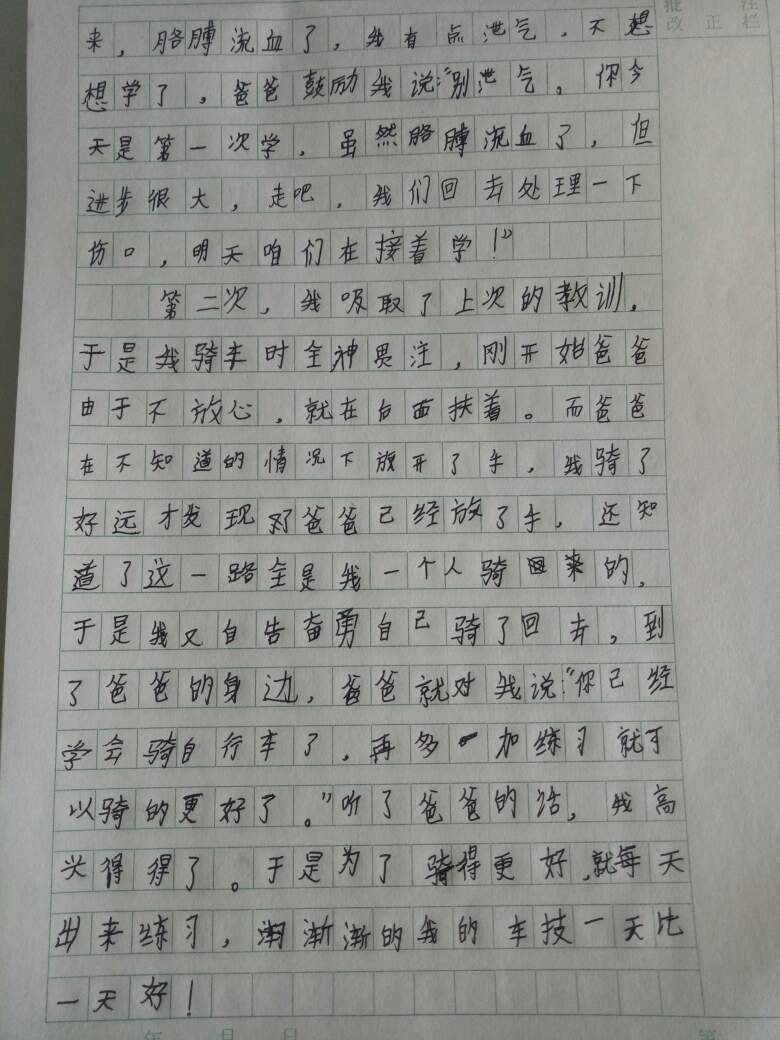 批 注
改 正 栏
来，胳膊流血了，我有点泄气，不想
想学了，爸爸鼓励我说：“别泄气。你今
天是第一次学，虽然胳膊流血了，但
进步很大，走吧，我们回去处理一下
伤口，明天咱们在接着学！”
第二次，我吸取了上次的教训，
于是我骑车时全神贯注，刚开始爸爸
由于不放心，就在后面扶着。而爸爸
在不知道的情况下放开了手，我骑了
好远才发现对爸爸已经放了手，还知
道了这一路全是我一个人骑回来的，
于是我又自告奋勇自己骑了回去，到
了爸爸的身边，爸爸就对我说：“你已经
学会骑自行车了，再多加练习就可
以骑的更好了。”听了爸爸的话，我高
兴得得了。于是为了骑得更好，就每天
出来练习，渐渐的我的车技一天比
一天好！
年 月 日 第